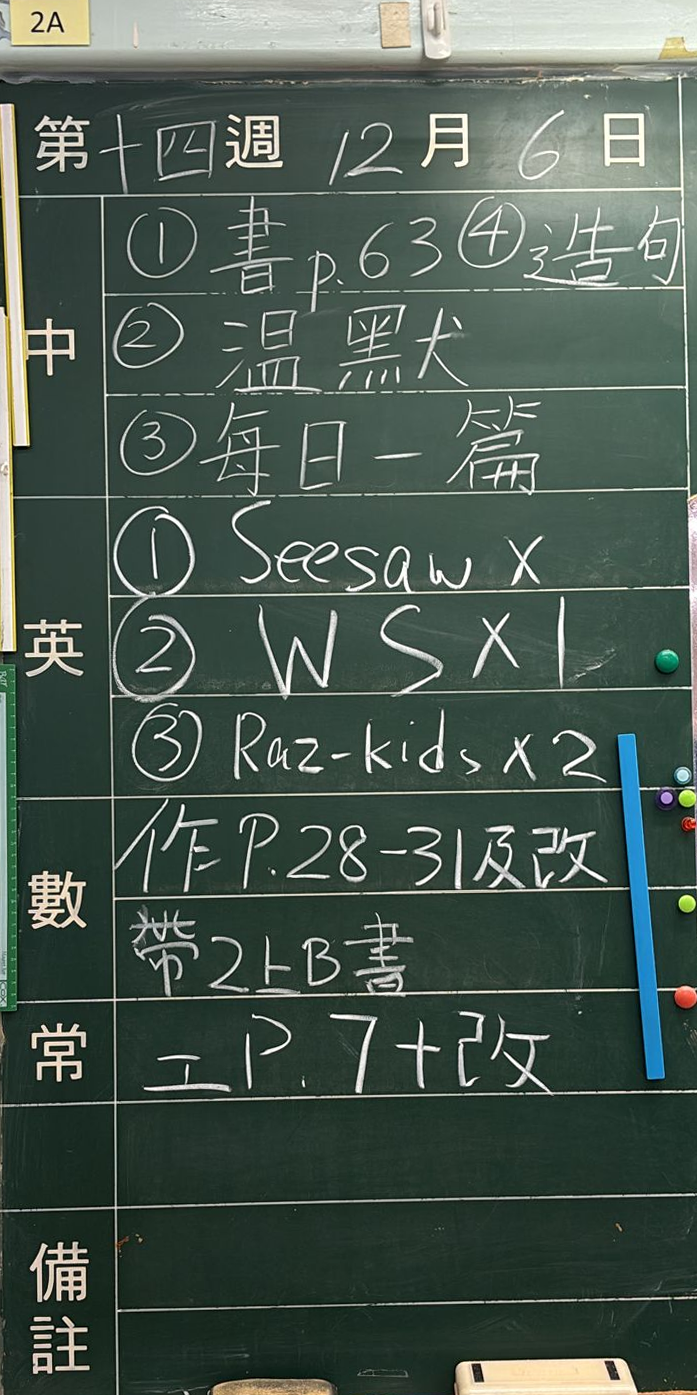 2A
第十四週 12月6日
中
① 書p.63 ④造句
② 溫默
③ 每日一篇
英
① Seesaw x
② WS x 1
③ Raz-kids x 2
數
作P.28-31及改
帶2上B書
常
工P.7+改
備註